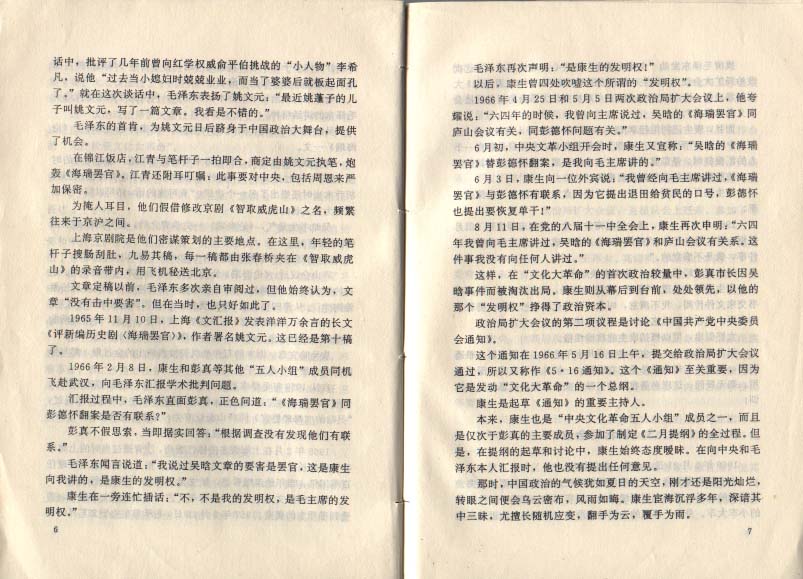 话中，批评了几年前曾向红学权威俞平伯挑战的“小人物”李希
凡，说他“过去当小媳妇时兢兢业业，而当了婆婆后就板起面孔
了。”就在这次谈话中，毛泽东表扬了姚文元：“最近姚蓬子的儿
子叫姚文元，写了一篇文章。我看是不错的。”
毛泽东的首肯，为姚文元日后跻身于中国政治大舞台，提供
了机会。
在锦江饭店，江青与笔杆子一拍即合，商定由姚文元执笔，炮
轰《海瑞罢官》。江青还附耳叮嘱：此事要对中央，包括周恩来严
加保密。
为掩人耳目，他们假借修改京剧《智取威虎山》之名，频繁
往来于京沪之间。
上海京剧院是他们密谋策划的主要地点。在这里，年轻的笔
杆子搜肠刮肚，九易其稿，每一稿都由张春桥夹在《智取威虎
山》的录音带内，用飞机秘送北京。
文章定稿以前，毛泽东多次亲自审阅过，但他始终认为，文
章“没有击中要害”，但在当时，也只好如此了。
1965年11月10日，上海《文汇报》发表洋洋万余言的长文
《评新编历史剧〈海瑞罢官〉》，作者署名姚文元。这已经是第十稿
了。
1966年2月8日，康生和彭真等其他“五人小组”成员同机
飞赴武汉，向毛泽东汇报学术批判问题。
汇报过程中，毛泽东直面彭真，正色问道：“《海瑞罢官》同
彭德怀翻案是否有联系？”
彭真不假思索，当即据实回答：“根据调查没有发现他们有联
系。”
毛泽东闻言说道：“我说过吴晗文章的要害是罢官，这是康生
向我讲的，是康生的发明权。”
康生在一旁连忙插话：“不，不是我的发明权，是毛主席的发
明权。”
6
毛泽东再次声明：“是康生的发明权！”
以后，康生曾四处吹嘘这个所谓的“发明权”。
1966年4月25日和5月5日两次政治局扩大会议上，他夸
耀说：“六四年的时候，我曾向主席说过，吴晗的《海瑞罢官》同
庐山会议有关，同彭德怀问题有关。”
6月初，中央文革小组开会时，康生又宣称：“吴晗的《海瑞
罢官》替彭德怀翻案，是我向毛主席讲的。”
6月3日，康生向一位外宾说：“我曾经向毛主席讲过，《海瑞
罢官》与彭德怀有联系，因为它提出退田给贫民的口号，彭德怀
也提出要恢复单干！”
8月11日，在党的八届十一中全会上，康生再次申明：“六四
年我曾向毛主席讲过，吴晗的《海瑞罢官》和庐山会议有关系。这
件事我没有向任何人讲过。”
这样，在“文化大革命”的首次政治较量中，彭真市长因吴
晗事件而被淘汰出局。康生则从幕后到台前，处处领先，以他的
那个“发明权”挣得了政治资本。
政治局扩大会议的第二项议程是讨论《中国共产党中央委员
会通知》。
这个通知在1966年5月16日上午，提交给政治局扩大会议
通过，所以又称作《5·16通知》。这个《通知》至关重要，因为
它是发动“文化大革命”的一个总纲。
康生是起草《通知》的重要主持人。
本来，康生也是“中央文化革命五人小组”成员之一，而且
是仅次于彭真的主要成员，参加了制定《二月提纲》的全过程。但
是，在提纲的起草和讨论中，康生始终态度暧昧。在向中央和毛
泽东本人汇报时，他也没有提出任何意见。
那时，中国政治的气候犹如夏日的天空，刚才还是阳光灿烂，
转眼之间便会乌云密布，风雨如晦。康生宦海沉浮多年，深谙其
中三昧，尤擅长随机应变，翻手为云，覆手为雨。
7